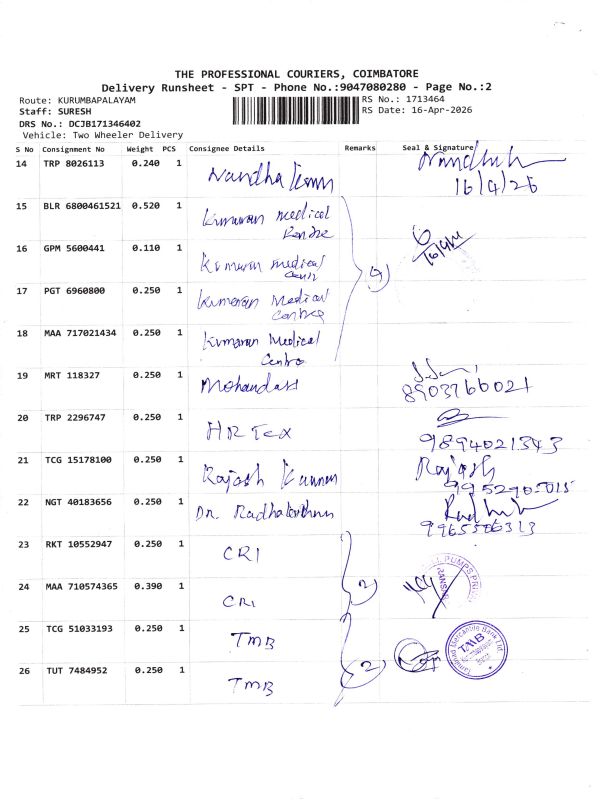 THE PROFESSIONAL COURIERS, COIMBATORE
Delivery Runsheet - SPT - Phone No.:9047080280 - Page No.:2
Route: KURUMBAPALAYAM
RS No.: 1713464
Staff: SURESH
RS Date: 16-Apr-2026
DRS No.: DCJB171346402
Vehicle: Two Wheeler Delivery
S No Consignment No Weight PCS Consignee Details Remarks Seal & Signature
14 TRP 8026113 0.240 1 Nandha Kumar
16/4/26
15 BLR 6800461521 0.520 1 Kumaran Medical
Centre
16 GPM 5600441 0.110 1 Kumaran Medical
Centre
17 PGT 6960800 0.250 1 Kumaran Medical
Centre
18 MAA 717021434 0.250 1 Kumaran Medical
Centro
(4)
19 MRT 118327 0.250 1 Mohandass
8903766021
20 TRP 2296747 0.250 1 HR Tex
9894021343
21 TCG 15178100 0.250 1 Rajash Kannan Rajash
22 NGT 40183656 0.250 1 Dr. Radhakrishnan
9965506313
23 RKT 10552947 0.250 1 CRI
24 MAA 710574365 0.390 1 CRI
(2)
PUMPS
25 TCG 51033193 0.250 1 TMB
26 TUT 7484952 0.250 1 TMB
(2)
Tamilnad Mercantile Bank Ltd.
TMB